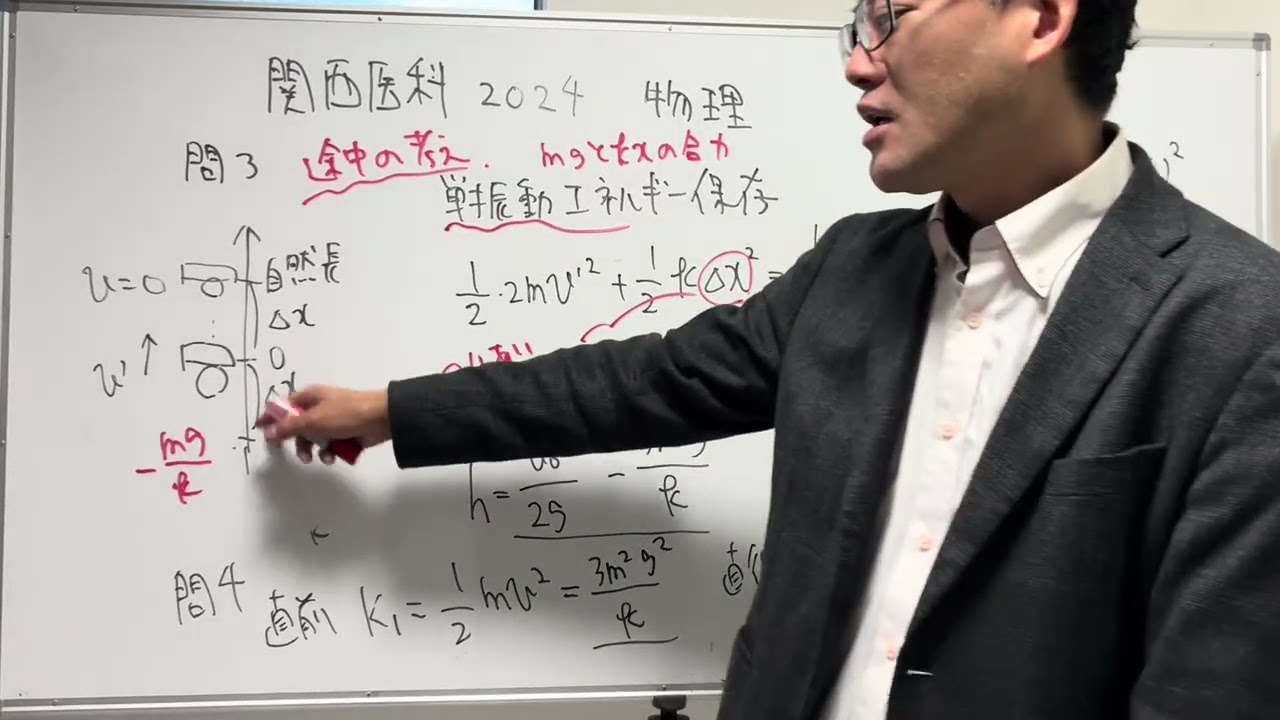 関西医科 2024 物理
問3 途中の考え. mgとkxの合力
単振動エネルギー保存
v=0 自然長
Δx
1/2・2mv'² + 1/2 k Δx² =
v' ↑ 0
Δx
-mg/k
h = /2g - /k
問4 直前 K₁ = 1/2 mv² = 3m²g²/k